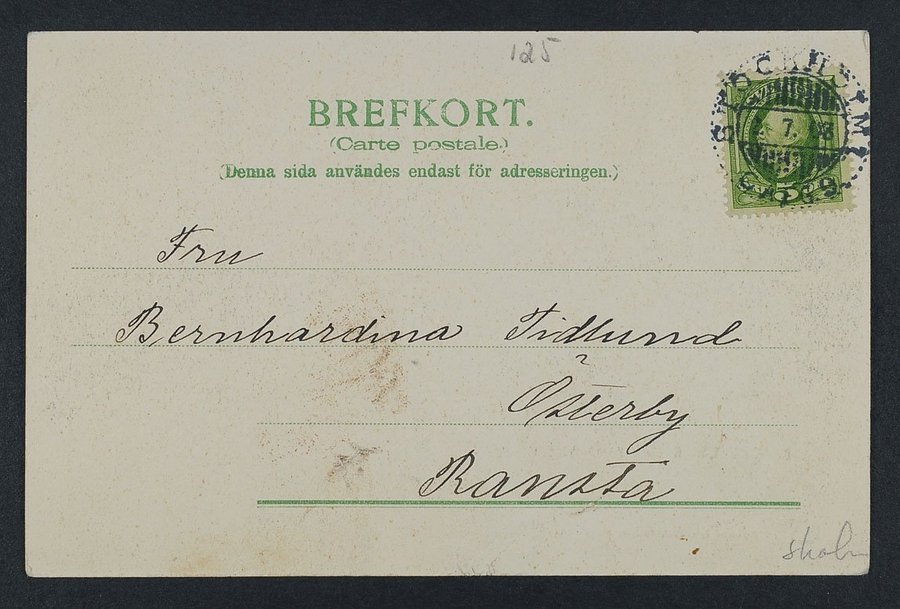 125
BREFKORT.
(Carte postale.)
(Denna sida användes endast för adresseringen.)
STOCKHOLM 1
7.
Fru
Bernhardina Tidlund
Österby
Ransta